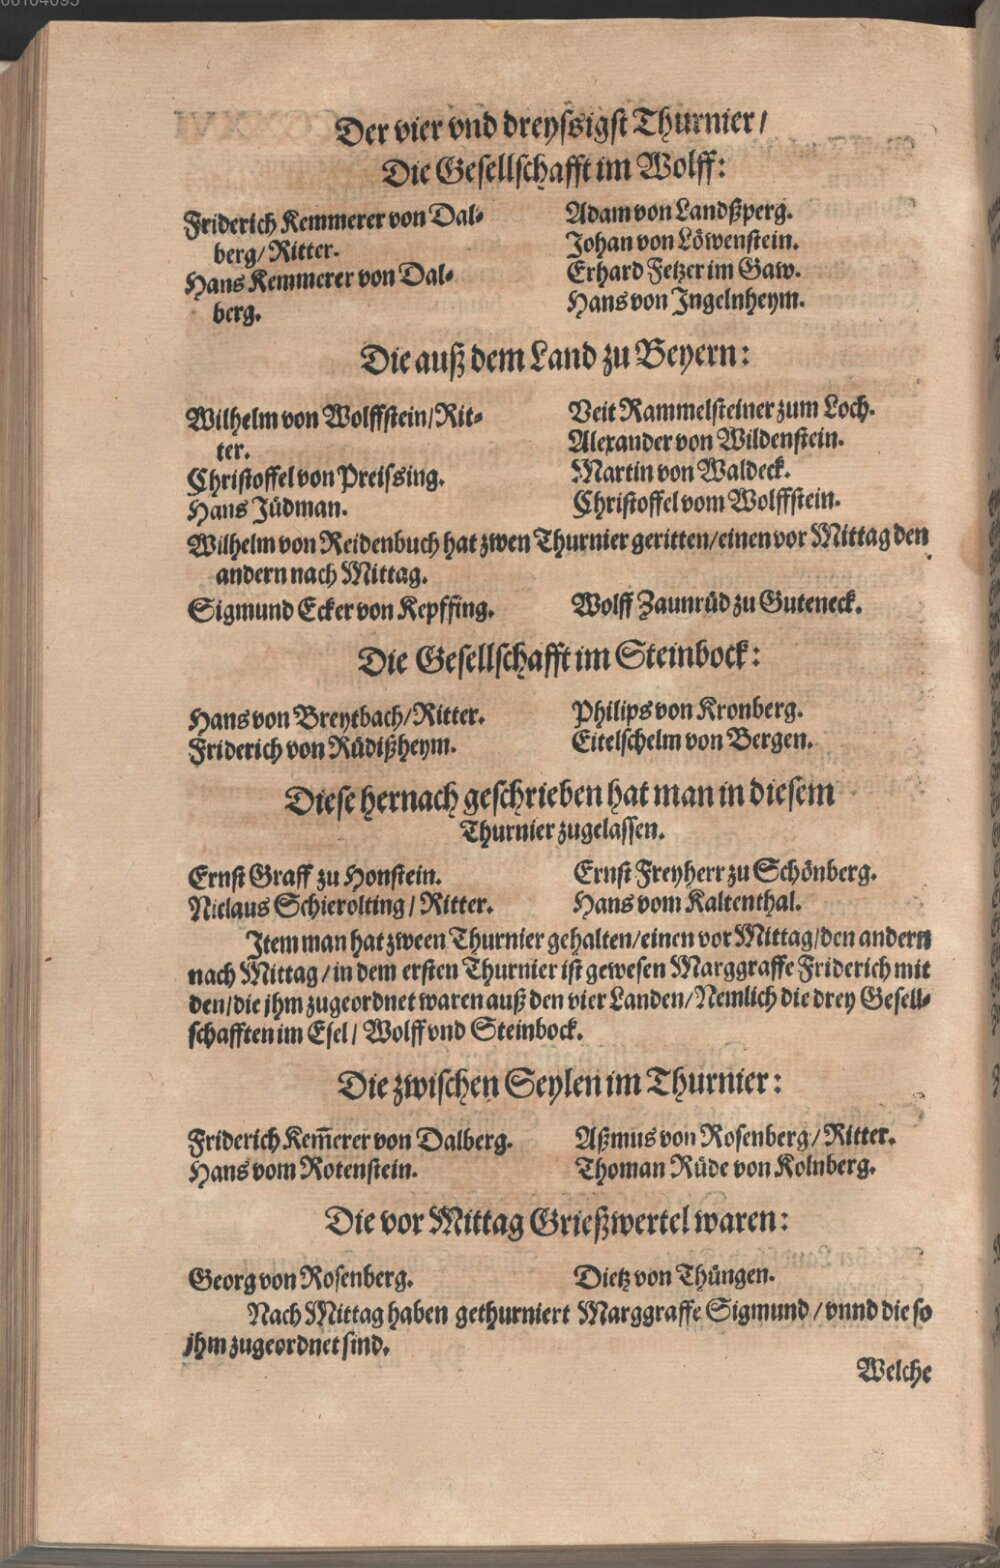 Der vier vnd dreyssigst Thurnier /
Die Gesellschafft im Wolff:
Friderich Kemmerer von Dal-
berg / Ritter.
Hans Kemmerer von Dal-
berg.
Adam von Landßperg.
Johan von Löwenstein.
Erhard Fetzer im Gaw.
Hans von Ingelnheym.
Die auß dem Land zu Beyern:
Wilhelm von Wolffstein / Rit-
ter.
Christoffel von Preissing.
Hans Jüdman.
Veit Rammelsteiner zum Loch.
Alexander von Wildenstein.
Martin von Waldeck.
Christoffel vom Wolffstein.
Wilhelm von Reidenbuch hat zwen Thurnier geritten / einen vor Mittag den
andern nach Mittag.
Sigmund Ecker von Kepffing.
Wolff Zaunrüd zu Guteneck.
Die Gesellschafft im Steinbock:
Hans von Breytbach / Ritter.
Friderich von Rüdißheym.
Philips von Kronberg.
Eitelschelm von Bergen.
Diese hernach geschrieben hat man in diesem
Thurnier zugelassen.
Ernst Graff zu Honstein.
Niclaus Schierolting / Ritter.
Ernst Freyherr zu Schönberg.
Hans vom Kaltenthal.
Item man hat zween Thurnier gehalten / einen vor Mittag / den andern
nach Mittag / in dem ersten Thurnier ist gewesen Marggraffe Friderich mit
den / die jhm zugeordnet waren auß den vier Landen / Nemlich die drey Gesell-
schafften im Esel / Wolff vnd Steinbock.
Die zwischen Seylen im Thurnier:
Friderich Kem̄erer von Dalberg.
Hans vom Rotenstein.
Aßmus von Rosenberg / Ritter.
Thoman Rüde von Kolnberg.
Die vor Mittag Grießwertel waren:
Georg von Rosenberg.
Dietz von Thüngen.
Nach Mittag haben gethurniert Marggraffe Sigmund / vnnd die so
jhm zugeordnet sind.
Welche